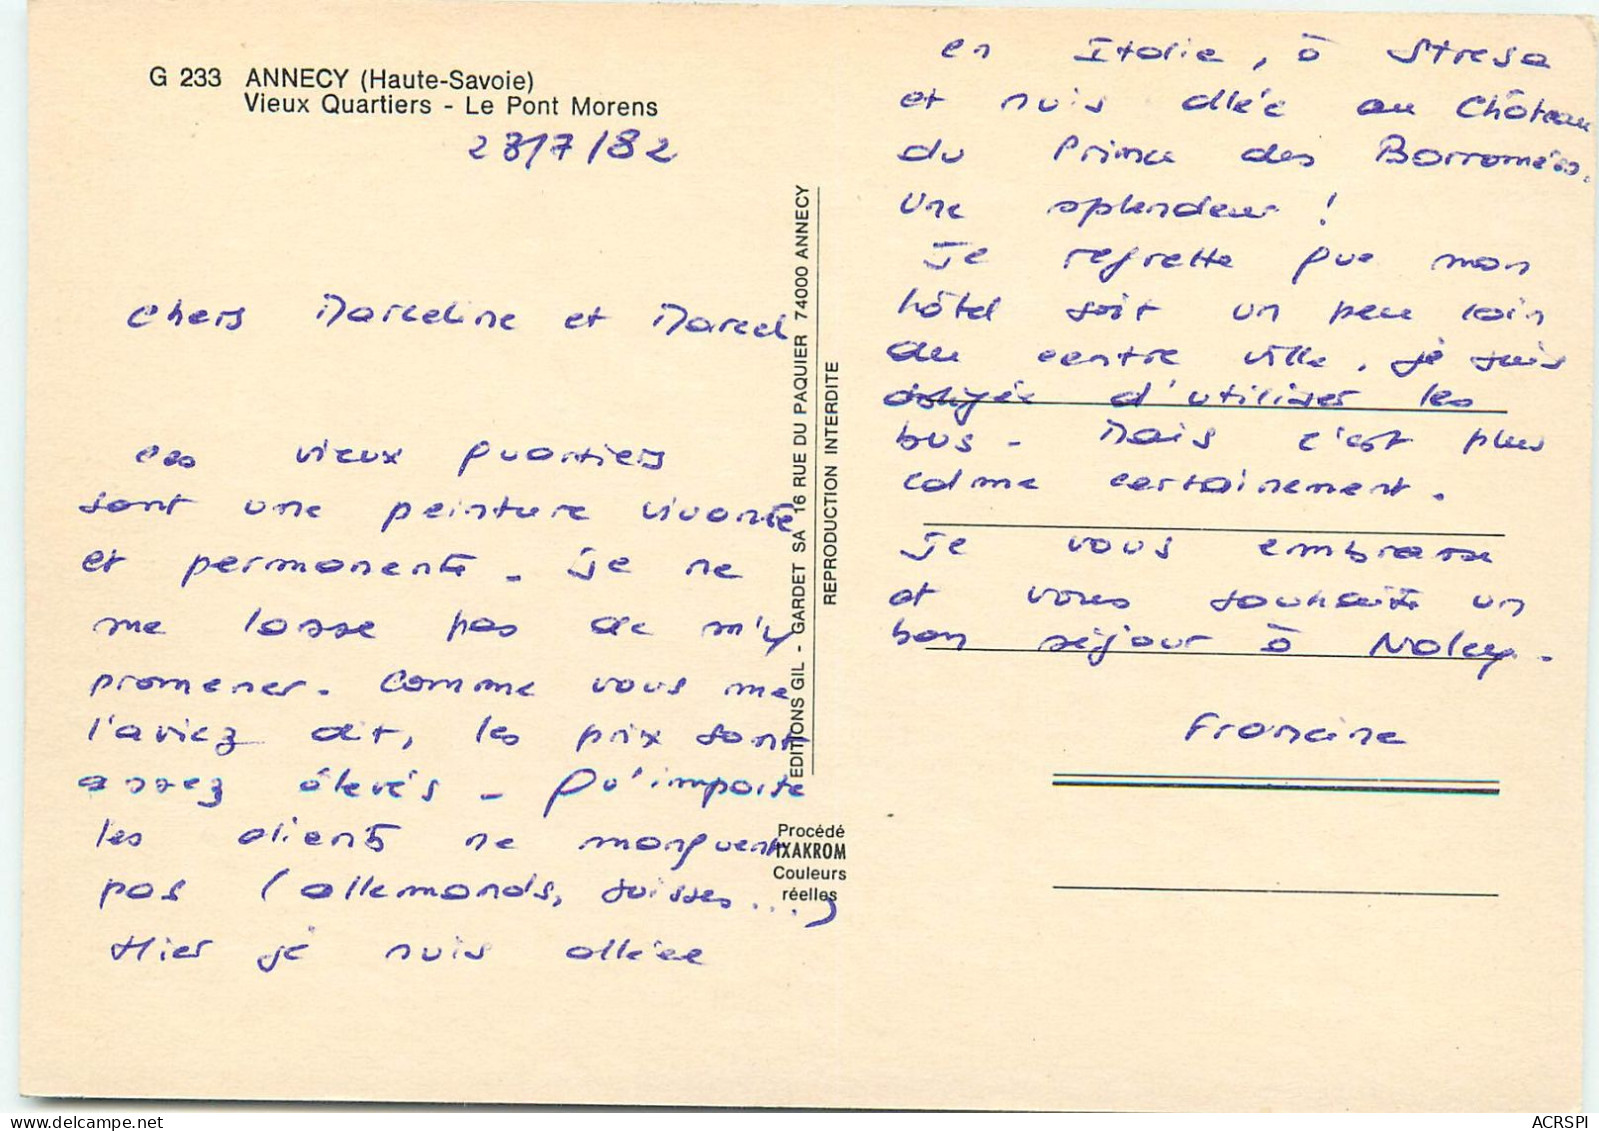 G 233 ANNECY (Haute-Savoie)
Vieux Quartiers - Le Pont Morens
28/7/82
Chers Marceline et Marcel
Ces vieux quartiers
sont une peinture vivante
et permanente - Je ne
me lasse pas de m'y
promener. Comme vous me
l'aviez dit, les prix sont
assez élevés - Qu'importe
les clients ne manquent
pas (allemands, suisses ...)
Hier je suis allée
EDITIONS GIL - GARDET SA 16 RUE DU PAQUIER 74000 ANNECY
REPRODUCTION INTERDITE
Procédé
IXAKROM
Couleurs
réelles
en Italie, à Stresa
et suis allée au Château
du Prince des Borromées.
Une splendeur !
Je regrette que mon
hôtel soit un peu loin
du centre ville, je suis
obligée d'utiliser les
bus - Mais c'est plus
calme certainement.
Je vous embrasse
et vous souhaite un
bon séjour à Nolay.
Francine
ACRSPI